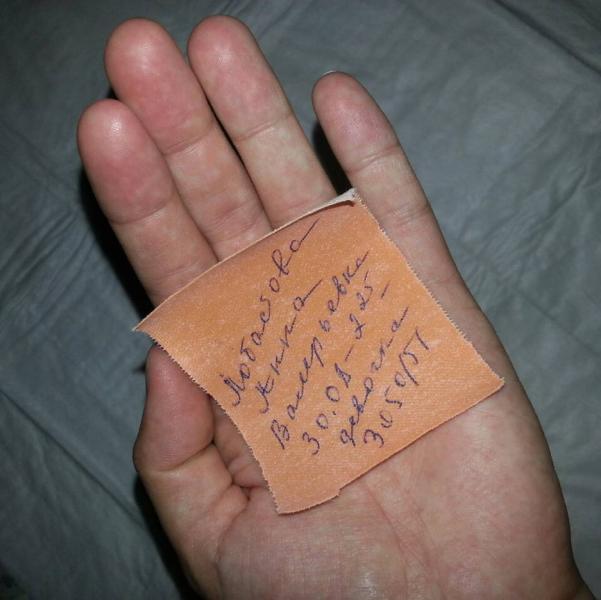 Лобастова
Анна
Валерьевна
30.08 - 2 25
девочка
3050/51